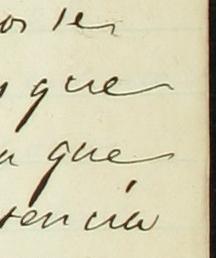 os le
s que
a que
sencia